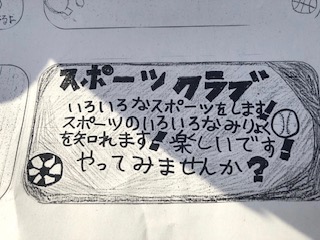 スポーツクラブ
いろいろなスポーツをします!
スポーツのいろいろなみりょく
を知れます!楽しいです!
やってみませんか?